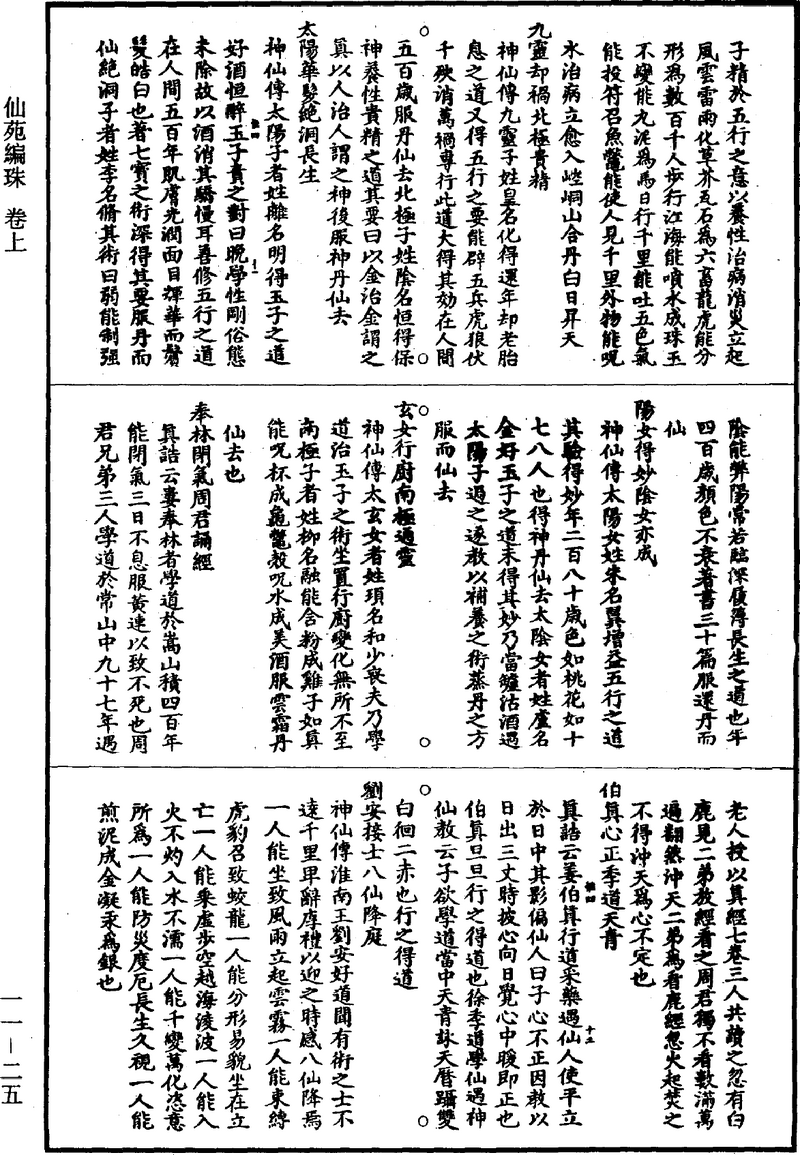 仙苑編珠 卷上
子精於五行之意以養性治病消災立起
風雲雷雨化草芥瓦石爲六畜龍虎能分
形爲數百千人步行江海能噴水成珠玉
不變能丸泥爲馬日行千里能吐五色氣
能投符召魚鼈能使人見千里外物能呪
水治病立愈入崆峒山合丹白日昇天
九靈却禍北極貴精
神仙傳九靈子姓皇名化得還年却老胎
息之道又得五行之要能辟五兵虎狼伏
千殃消萬禍專行此道大得其効在人間
五百歲服丹仙去北極子姓陰名恒得保
神養性貴精之道其要曰以金治金謂之
真以人治人謂之神後服神丹仙去
太陽華髮絶洞長生
神仙傳太陽子者姓離名明得玉子之道
好酒恒醉玉子責之對曰晚學性剛俗態
未除故以酒消其驕慢耳善修五行之道
在人間五百年肌膚光潤面目輝華而鬢
髮皓白也著七寶之術深得其要服丹而
仙絶洞子者姓李名脩其術曰弱能制强
陰能弊陽常若臨深履薄長生之道也年
四百歲顏色不衰著書三十篇服還丹而
仙
陽女得妙陰女亦成
神仙傳太陽女姓朱名翼增益五行之道
其驗得妙年二百八十歲色如桃花如十
七八人也得神丹仙去太陰女者姓盧名
金好玉子之道未得其妙乃當壚沽酒遇
太陽子過之遂教以補養之術蒸丹之方
服而仙去
玄女行廚南極通靈
神仙傳太玄女者姓頊名和少喪夫乃學
道治玉子之術坐置行廚變化無所不至
南極子者姓柳名融能含粉成雞子如真
能呪杯成龜鼈殼呪水成美酒服雲霜丹
仙去也
奉林閉氣周君誦經
真誥云婁奉林者學道於嵩山積四百年
能閉氣三日不息服黄連以致不死也周
君兄弟三人學道於常山中九十七年遇
老人授以真經七卷三人共讀之忽有白
鹿見二弟放經看之周君獨不看數滿萬
遍翻然沖天二弟爲看鹿經忽火起焚之
不得沖天爲心不定也
伯真心正季道天青
真誥云姜伯真行道采藥遇仙人使平立
於日中其影偏仙人曰子心不正因教以
日出三丈時披心向日覺心中暖即正也
伯真旦旦行之得道也徐季道學仙遇神
仙教云子欲學道當巾天青詠天曆躡雙
白徊二赤也行之得道
劉安接士八仙降庭
神仙傳淮南王劉安好道聞有術之士不
遠千里卑辭厚禮以迎之時感八仙降焉
一人能坐致風雨立起雲霧一人能束縛
虎豹召致蛟龍一人能分形易貌坐在立
亡一人能乘虛步空越海淩波一人能入
火不灼入水不濡一人能千變萬化恣意
所爲一人能防災度厄長生久視一人能
煎泥成金凝汞爲銀也
一一－二五